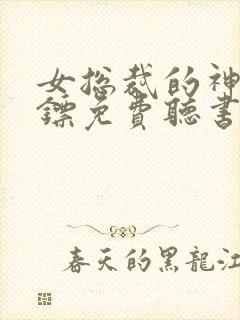 女总裁的神
镖免费聽書
春天的黑龍江